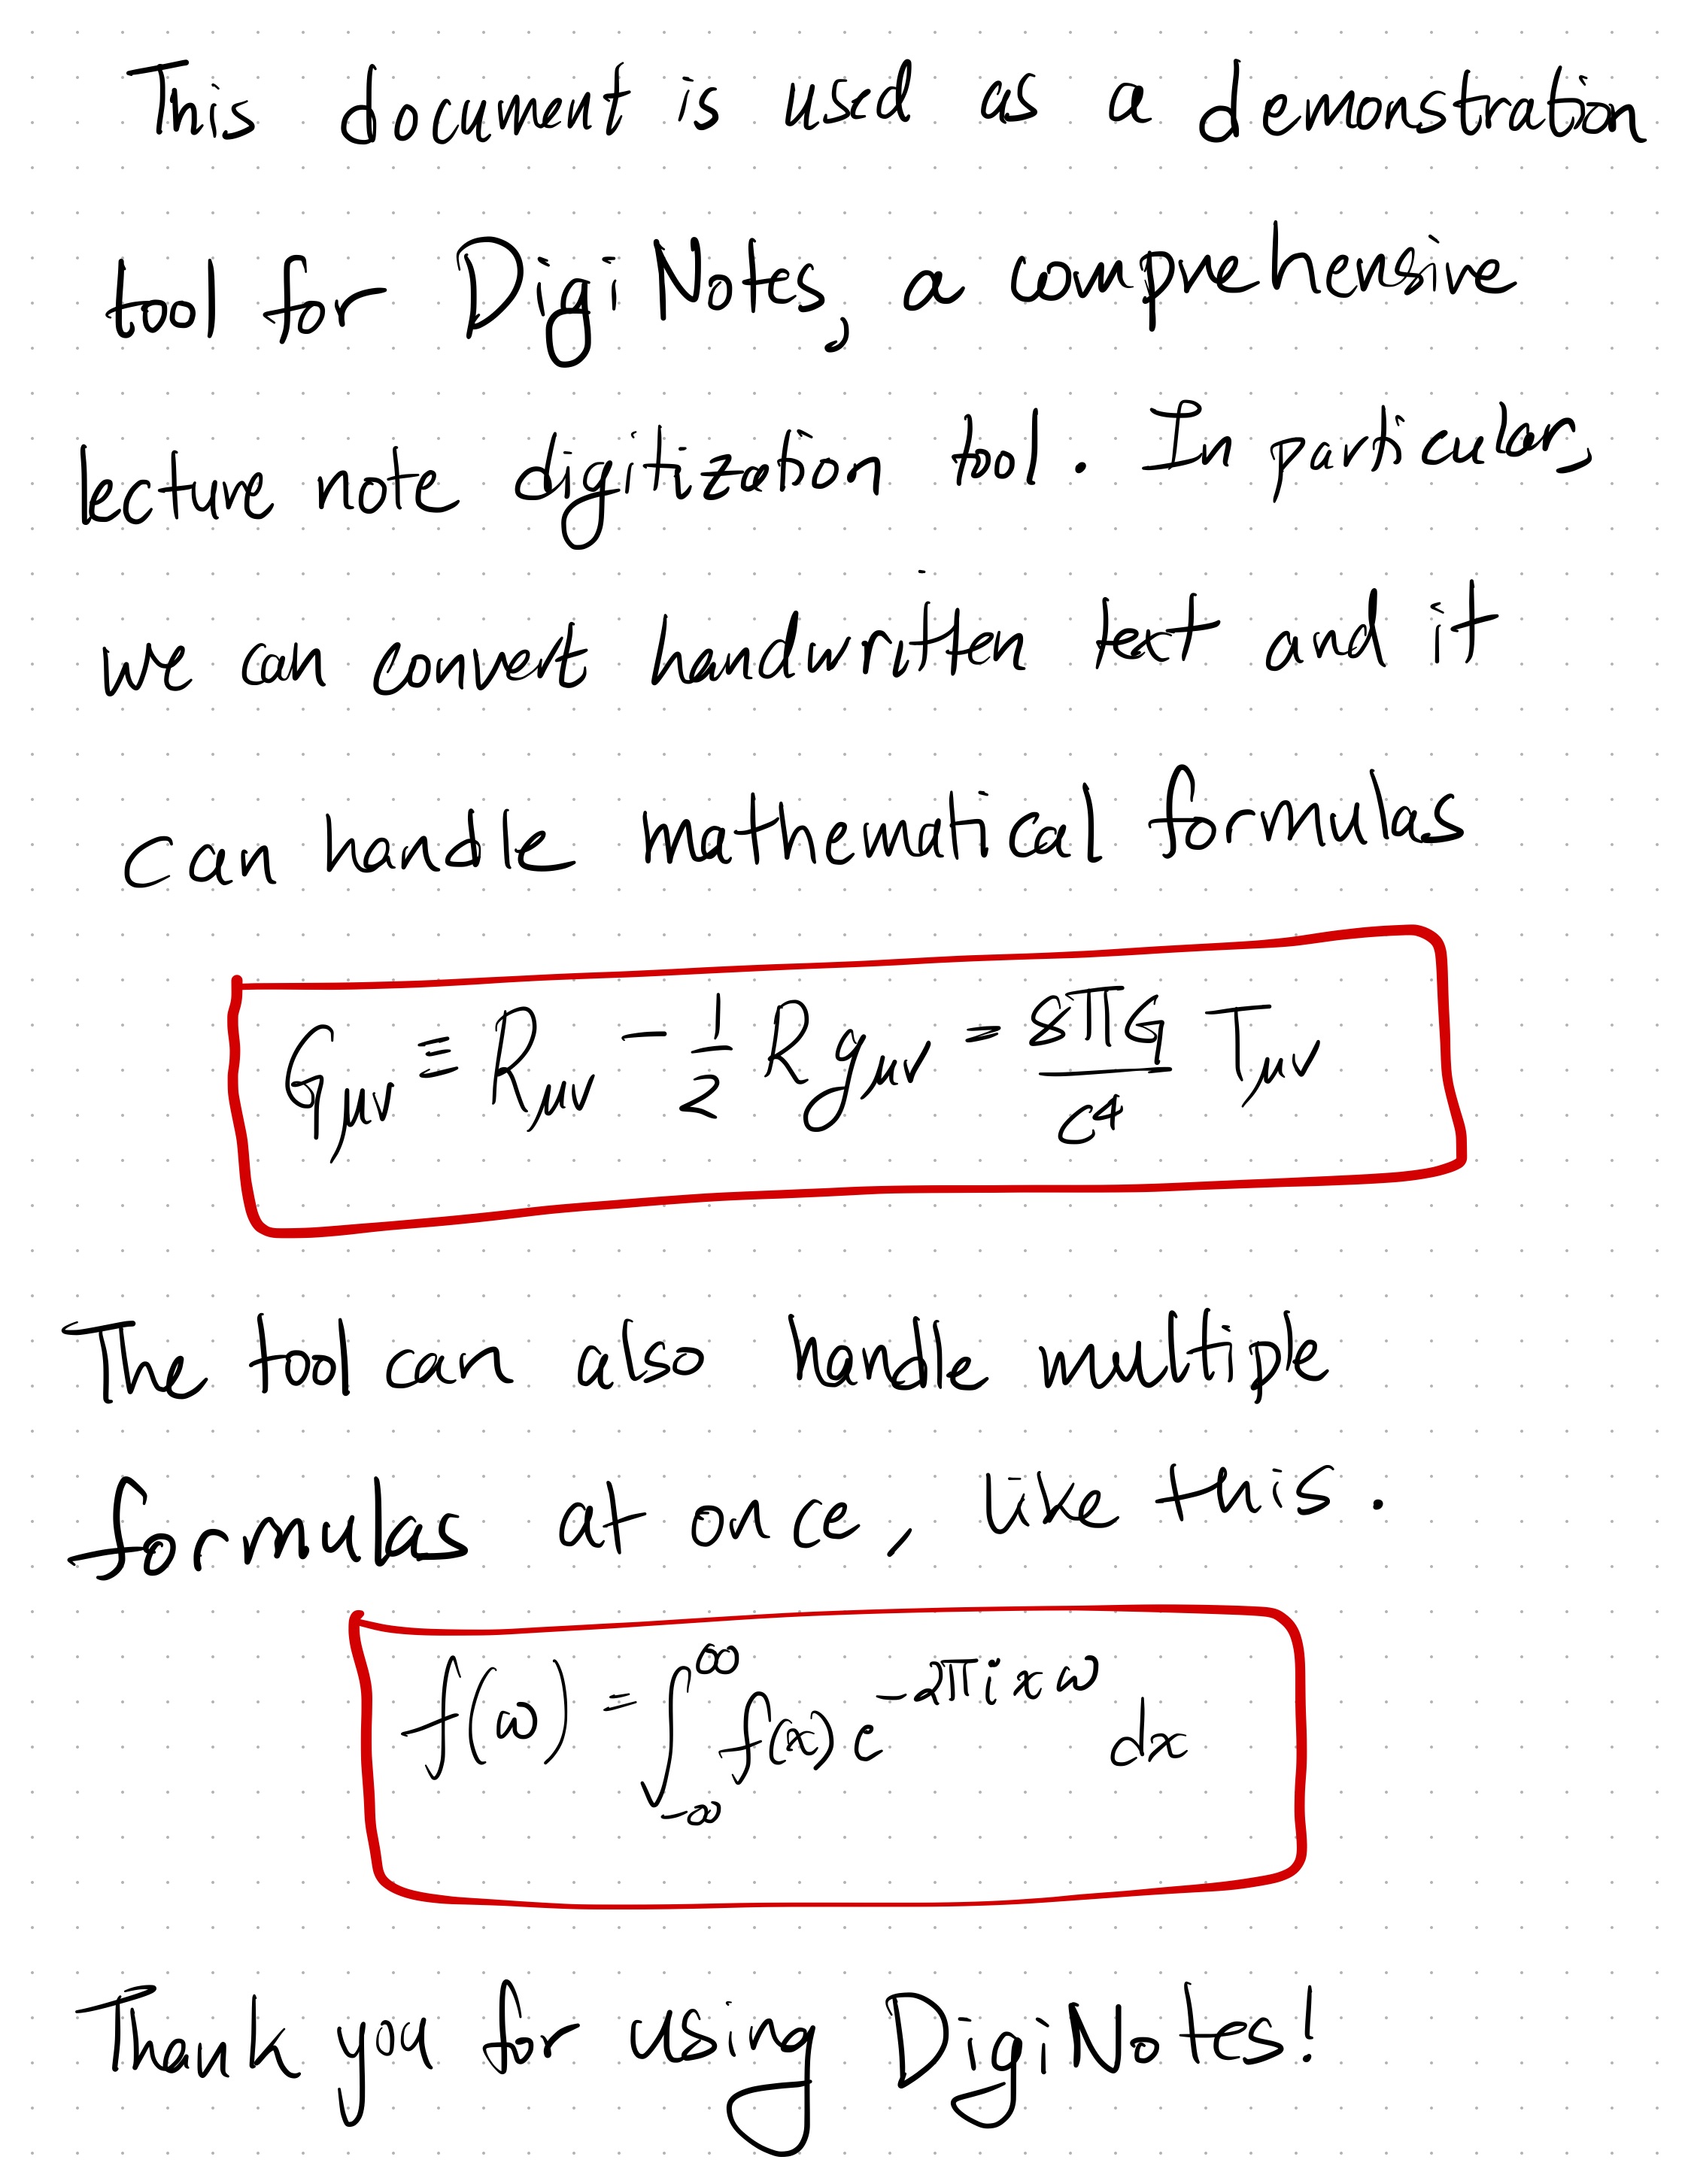 This document is used as a demonstration
tool for DigiNotes, a comprehensive
lecture note digitization tool. In particular,
we can convert handwritten text and it
can handle mathematical formulas
G_μν ≡ R_μν − 1/2 R g_μν = 8πG/c⁴ T_μν
The tool can also handle multiple
formulas at once, like this.
f(ω) = ∫_{-∞}^{∞} f(x) e^{-2πixω} dx
Thank you for using DigiNotes!